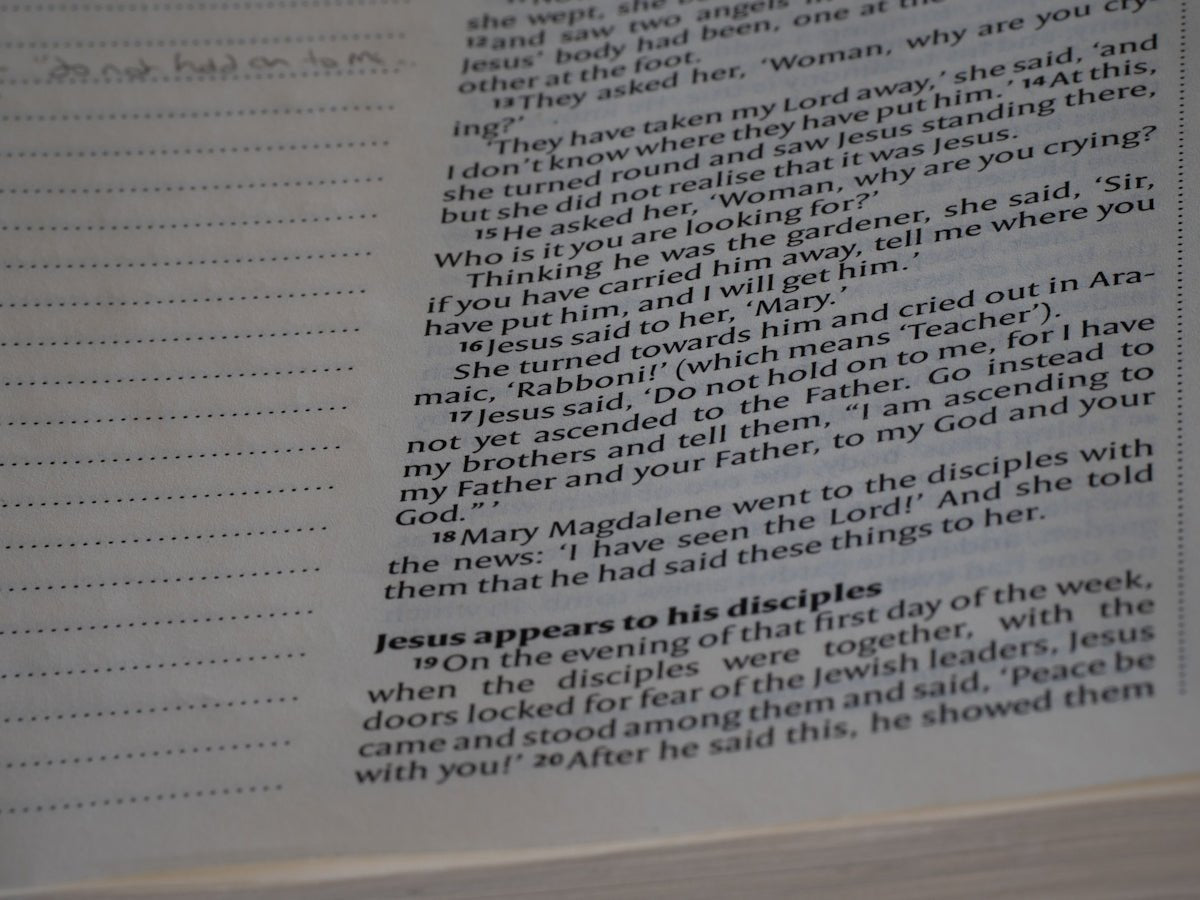 "do not hold on to me
she wept, she
12and saw two angels
Jesus' body had been, one at the
other at the foot.
13They asked her, ‘Woman, why are you cry-
ing?’
‘They have taken my Lord away,’ she said, ‘and
I don’t know where they have put him.’ 14At this,
she turned round and saw Jesus standing there,
but she did not realise that it was Jesus.
15He asked her, ‘Woman, why are you crying?
Who is it you are looking for?’
Thinking he was the gardener, she said, ‘Sir,
if you have carried him away, tell me where you
have put him, and I will get him.’
16Jesus said to her, ‘Mary.’
She turned towards him and cried out in Ara-
maic, ‘Rabboni!’ (which means ‘Teacher’).
17Jesus said, ‘Do not hold on to me, for I have
not yet ascended to the Father. Go instead to
my brothers and tell them, “I am ascending to
my Father and your Father, to my God and your
God.” ’
18Mary Magdalene went to the disciples with
the news: ‘I have seen the Lord!’ And she told
them that he had said these things to her.
Jesus appears to his disciples
19On the evening of that first day of the week,
when the disciples were together, with the
doors locked for fear of the Jewish leaders, Jesus
came and stood among them and said, ‘Peace be
with you!’ 20After he said this, he showed them